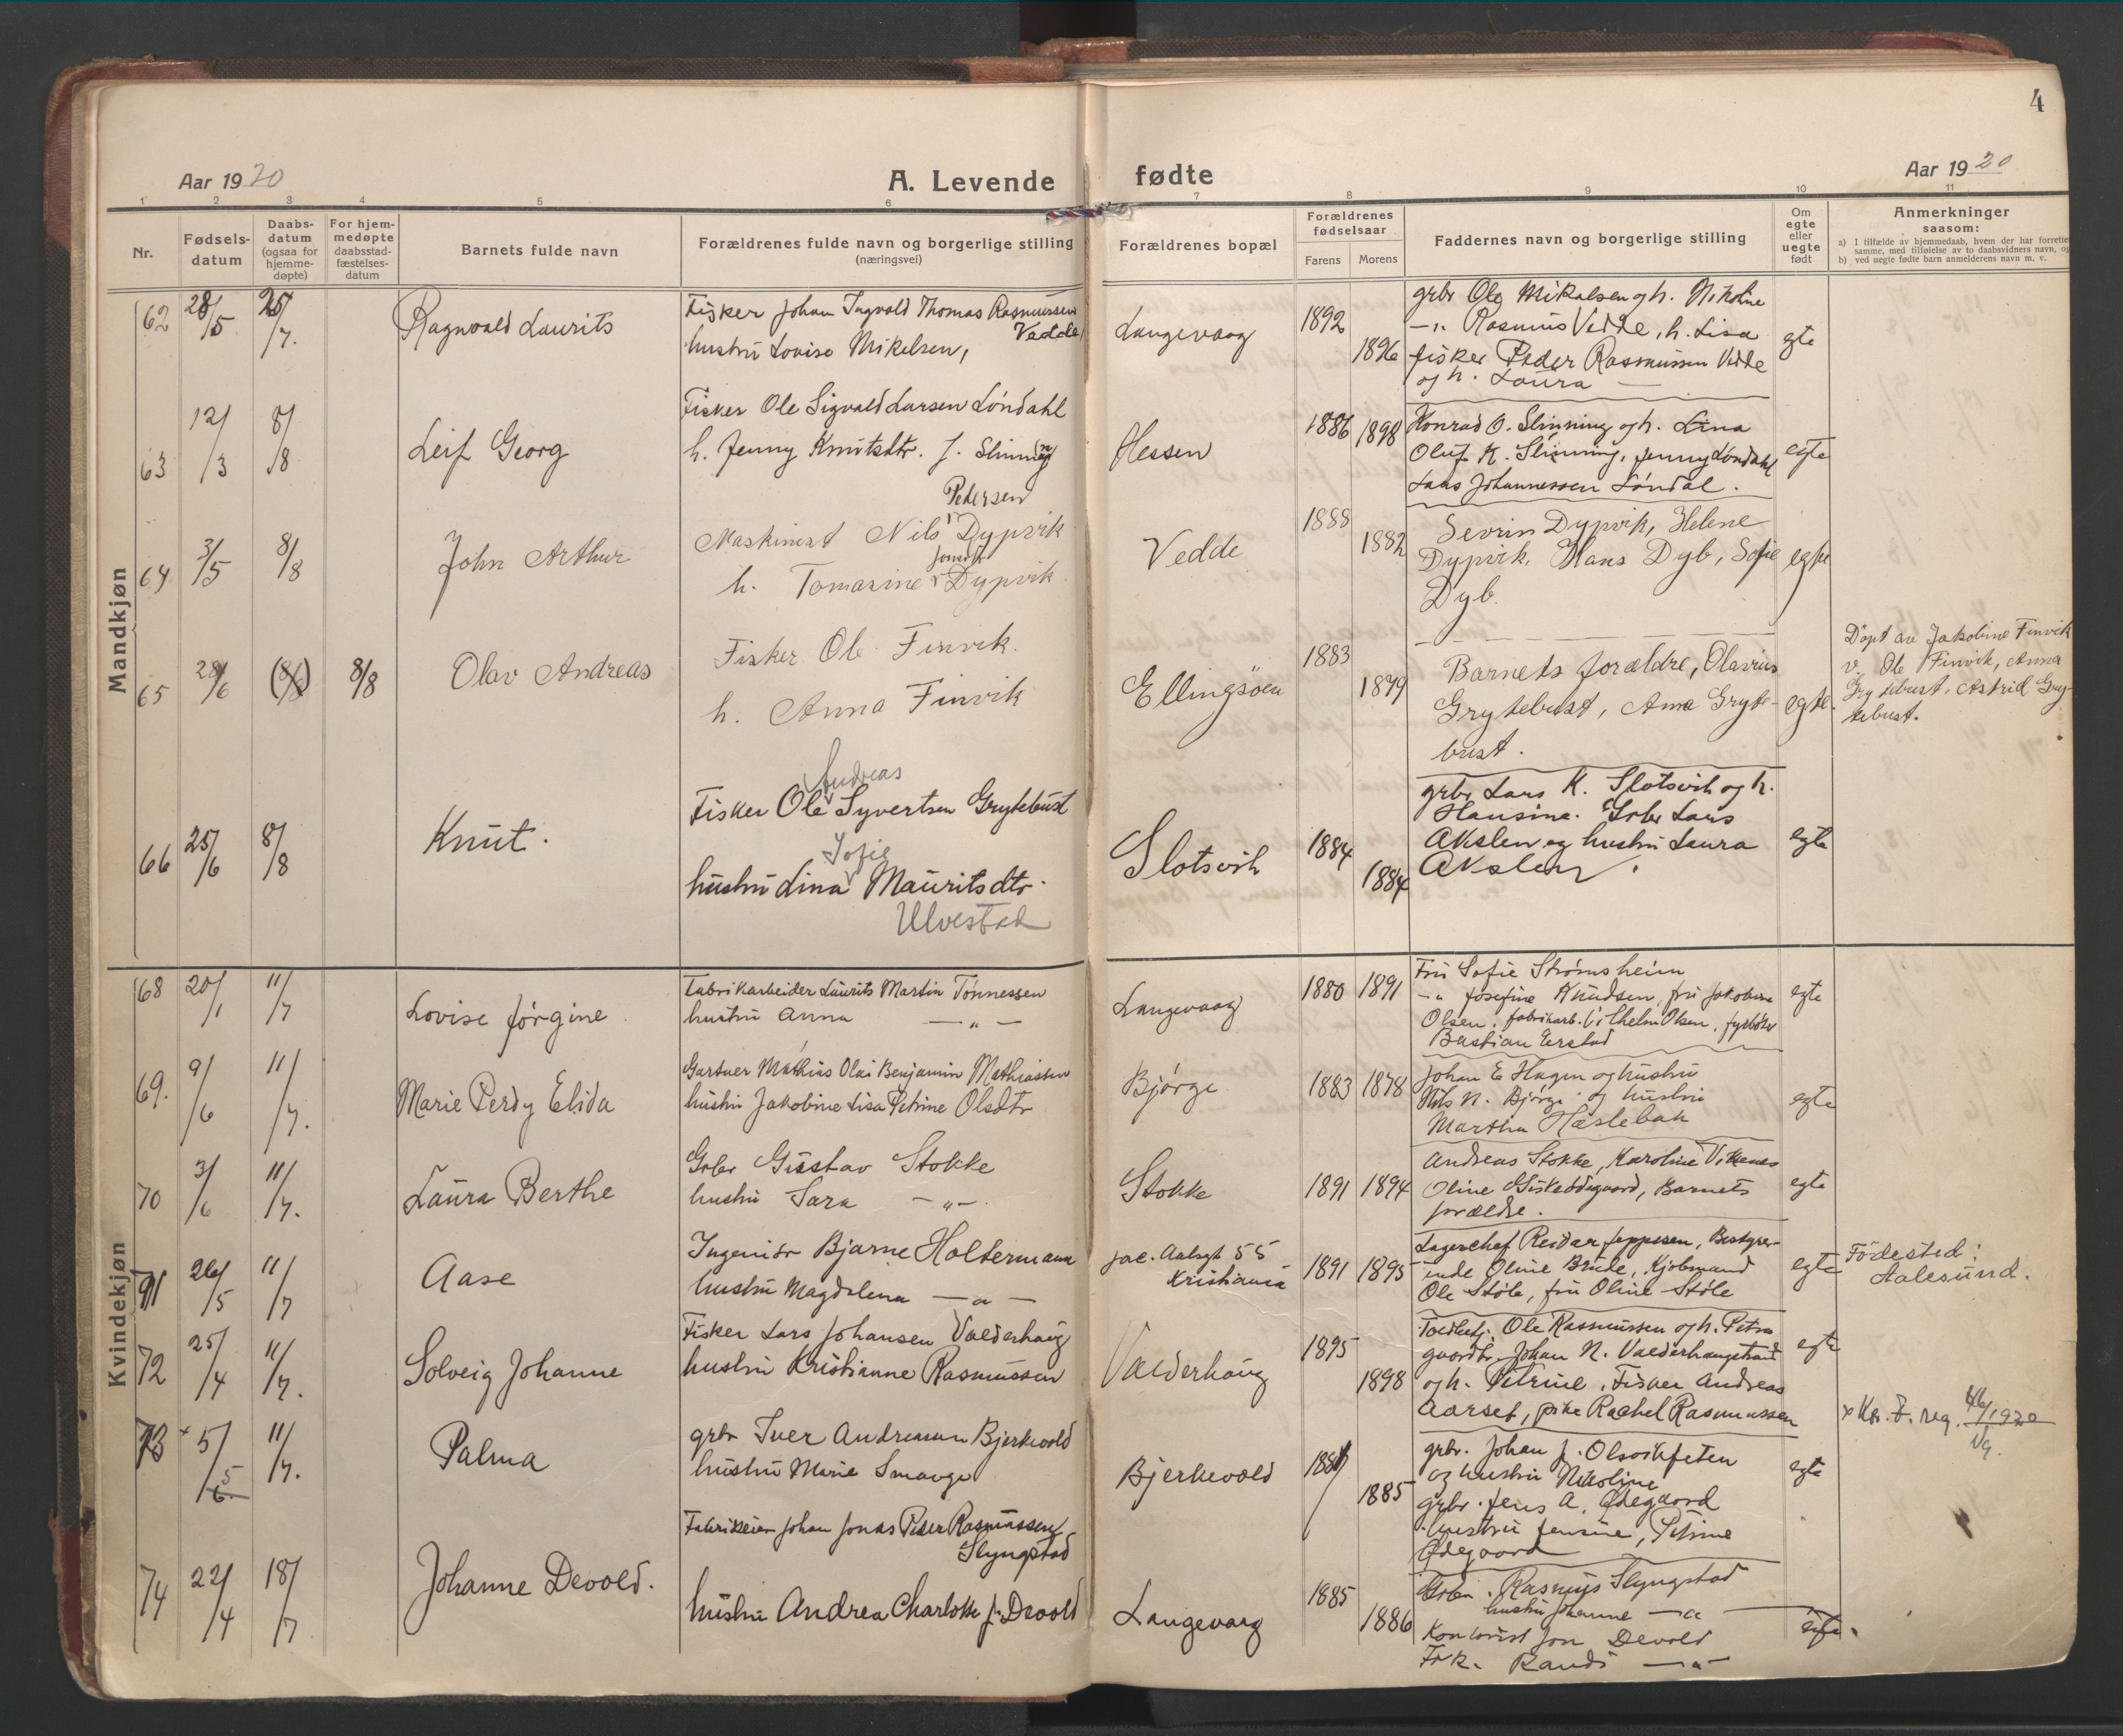 4
Aar 1920
A. Levende fødte
Aar 1920
1 2 3 4 5 6 7 8 9 10 11
Nr.
Fødsels-
datum
Daabs-
datum
(ogsaa for
hjemme-
døpte)
For hjem-
medøpte
daabsstad-
fæstelses-
datum
Barnets fulde navn
Forældrenes fulde navn og borgerlige stilling
(næringsvei)
Forældrenes bopæl
Forældrenes
fødselsaar
Farens Morens
Faddernes navn og borgerlige stilling
Om
egte
eller
uegte
født
Anmerkninger
saasom:
a) I tilfælde av hjemmedaab, hvem der har forrettet
samme, med tilføielse av to daabsvidners navn, og
b) ved uegte fødte barn anmelderens navn m. v.
Mandkjøn
62 28/5 25/7. Ragnvald Laurits
Fisker Johan Ingvald Thomas Rasmussen
Vedde,
hustru Lovise Mikelsen,
Langevaag 1892 1896
grbr Ole Mikalsen og h. Nikoline
-"- Rasmus Vedde, h. Lisa
fisker Peder Rasmussen Vedde
og h. Laura
egte
63 12/3 8/8 Leif Georg
Fisker Ole Sigvald Larsen Løndahl
h. Jenny Knutsdtr. f. Slinning
Hessen 1886 1898
Konrad O. Slinning og h. Lina
Oluf K. Slinning, Jenny Løndahl
Lars Johannessen Løndal.
egte
64 3/5 8/8 John Arthur
Pedersen
Maskinist Nils Dypvik
Jonsdtr
h. Tomasine Dypvik.
Vedde 1888 1882
Sevrin Dypvik, Helene
Dypvik, Hans Dyb, Sofie
Dyb.
egte
65 28/6 (8/8) 8/8 Olav Andreas
Fisker Ole Finvik.
h. Anna Finvik
Ellingsöen 1883 1879
Barnets forældre, Olavius
Grytebust, Anna Gryte-
bust.
egte.
Döpt av Jakobine Finvik
v. Ole Finvik, Anna
Grytebust, Astrid Gry-
tebust.
66 25/6 8/8 Knut.
Andreas
Fisker Ole Syvertsen Grytebust
Sofie
hustru Lina Mauritsdtr.
Ulvestad
Slotsvik 1884 1884
grbr Lars K. Slotsvik og h.
Hansina. Grbr Lars
Akslen og hustru Laura
Akslen.
egte
Kvindekjøn
68 20/1 11/7 Lovise Jørgine
Fabrikarbeider Laurits Martin Tønnessen
hustru Anna -"-
Langevaag 1880 1891
Fru Sofie Strømsheim
-"- Josefine Knudsen, fru Jakobine
Olsen, fabrikarb. Vilhelm Olsen, fyrbøter
Bastian Erstad
egte
69. 9/6 11/7. Marie Perdy Elida
Gartner Mathias Olai Benjamin Mathiassen
hustru Jakobine Lisa Petrine Olsdtr
Bjørge 1883 1878
Johan E Hagen og hustru
Nils N. Bjørge og hustru
Martha Hæslebak
egte
70 3/6 11/7. Laura Berthe
Grbr Gustav Stokke
hustru Sara -"-
Stokke 1891 1894
Andreas Stokke, Karoline Viknes
Oline Giskeødegaard, Barnets
forældre.
egte
71 26/5 11/7 Aase
Ingeniør Bjarne Holtermann
hustru Magdalena -"-
Jac. Aalsgt 55
Kristiania
1891 1895
Lagerchef Reidar Jeppesen, Bestyrer-
inde Oline Brude, Kjøbmand
Ole Støle, fru Oline Støle
egte
Födested:
Aalesund.
72 25/4 11/7. Solveig Johanne
Fisker Lars Johansen Valderhaug
hustru Kristianne Rasmussen
Valderhaug 1895 1898
Ole Rasmussen og h. Petra
gaardbr. Johan N. Valderhaugstrand
og h. Petrine, Fisker Andreas
Aarset, pike Rachel Rasmussen
egte
73 × 5/5 6. 11/7. Palma
grbr Iver Andreassen Bjerkevold
hustru Marie Smaage
Bjerkevold 1885
grbr. Johan J. Olsvikfeten
og hustru Nikoline
grbr. Jens A. Ødegaard
hustru Jensine, Petrine
Ødegaard
egte
× Kr. F. reg. 46/1920
Vg.
74 22/4 18/7 Johanne Devold.
Fabrikeier Johan Jonas Peter Rasmussen
Slyngstad
hustru Andrea Charlotte f. Devold
Langevaag 1885 1886
Grbr. Rasmus Slyngstad
hustru Johanne -"-
Kontorist Jon Devold
Frk. Randi -"-
egte.